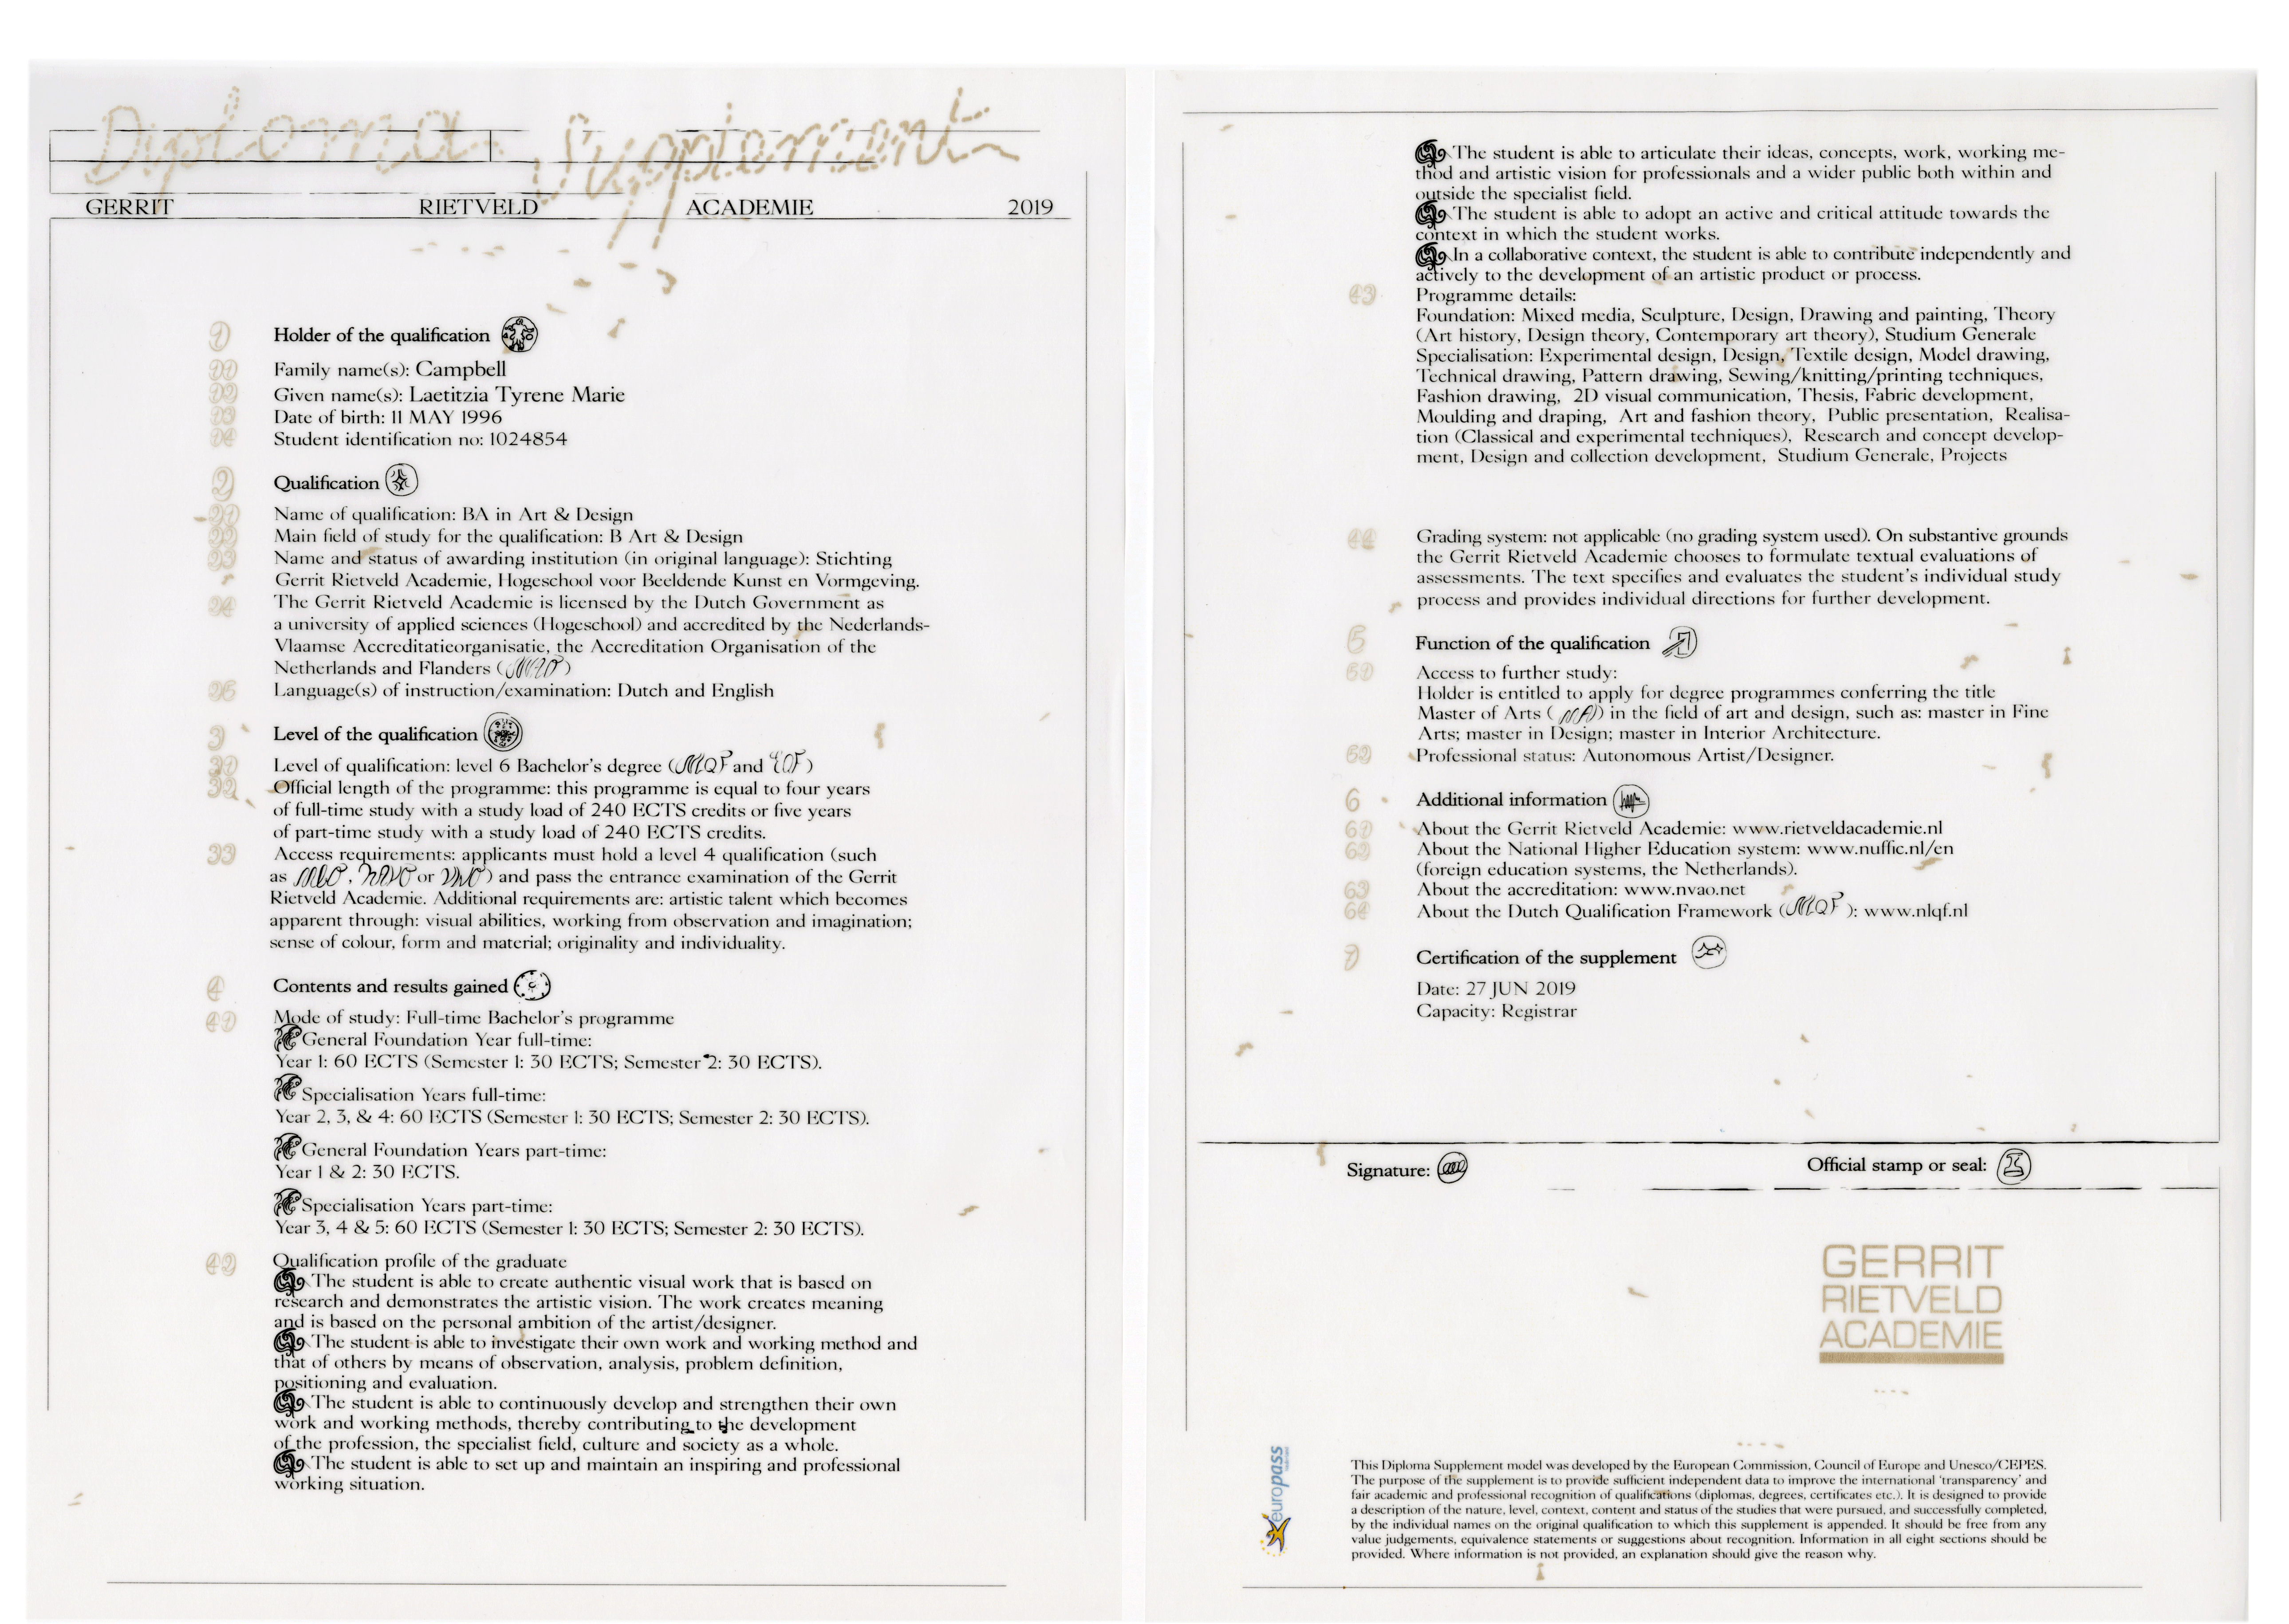 Diploma Supplement
GERRIT RIETVELD ACADEMIE 2019
1 Holder of the qualification
11 Family name(s): Campbell
12 Given name(s): Laetitzia Tyrene Marie
13 Date of birth: 11 MAY 1996
14 Student identification no: 1024854
2 Qualification
21 Name of qualification: BA in Art & Design
22 Main field of study for the qualification: B Art & Design
23 Name and status of awarding institution (in original language): Stichting
Gerrit Rietveld Academie, Hogeschool voor Beeldende Kunst en Vormgeving.
24 The Gerrit Rietveld Academie is licensed by the Dutch Government as
a university of applied sciences (Hogeschool) and accredited by the Nederlands-
Vlaamse Accreditatieorganisatie, the Accreditation Organisation of the
Netherlands and Flanders (NVAO)
25 Language(s) of instruction/examination: Dutch and English
3 Level of the qualification
31 Level of qualification: level 6 Bachelor's degree (NLQF and EQF)
32 Official length of the programme: this programme is equal to four years
of full-time study with a study load of 240 ECTS credits or five years
of part-time study with a study load of 240 ECTS credits.
33 Access requirements: applicants must hold a level 4 qualification (such
as MBO, HAVO or VWO) and pass the entrance examination of the Gerrit
Rietveld Academie. Additional requirements are: artistic talent which becomes
apparent through: visual abilities, working from observation and imagination;
sense of colour, form and material; originality and individuality.
4 Contents and results gained
41 Mode of study: Full-time Bachelor's programme
General Foundation Year full-time:
Year 1: 60 ECTS (Semester 1: 30 ECTS; Semester 2: 30 ECTS).
Specialisation Years full-time:
Year 2, 3, & 4: 60 ECTS (Semester 1: 30 ECTS; Semester 2: 30 ECTS).
General Foundation Years part-time:
Year 1 & 2: 30 ECTS.
Specialisation Years part-time:
Year 3, 4 & 5: 60 ECTS (Semester 1: 30 ECTS; Semester 2: 30 ECTS).
42 Qualification profile of the graduate
The student is able to create authentic visual work that is based on
research and demonstrates the artistic vision. The work creates meaning
and is based on the personal ambition of the artist/designer.
The student is able to investigate their own work and working method and
that of others by means of observation, analysis, problem definition,
positioning and evaluation.
The student is able to continuously develop and strengthen their own
work and working methods, thereby contributing to the development
of the profession, the specialist field, culture and society as a whole.
The student is able to set up and maintain an inspiring and professional
working situation.
The student is able to articulate their ideas, concepts, work, working me-
thod and artistic vision for professionals and a wider public both within and
outside the specialist field.
The student is able to adopt an active and critical attitude towards the
context in which the student works.
In a collaborative context, the student is able to contribute independently and
actively to the development of an artistic product or process.
43 Programme details:
Foundation: Mixed media, Sculpture, Design, Drawing and painting, Theory
(Art history, Design theory, Contemporary art theory), Studium Generale
Specialisation: Experimental design, Design, Textile design, Model drawing,
Technical drawing, Pattern drawing, Sewing/knitting/printing techniques,
Fashion drawing, 2D visual communication, Thesis, Fabric development,
Moulding and draping, Art and fashion theory, Public presentation, Realisa-
tion (Classical and experimental techniques), Research and concept develop-
ment, Design and collection development, Studium Generale, Projects
44 Grading system: not applicable (no grading system used). On substantive grounds
the Gerrit Rietveld Academie chooses to formulate textual evaluations of
assessments. The text specifies and evaluates the student's individual study
process and provides individual directions for further development.
5 Function of the qualification
51 Access to further study:
Holder is entitled to apply for degree programmes conferring the title
Master of Arts (MA) in the field of art and design, such as: master in Fine
Arts; master in Design; master in Interior Architecture.
52 Professional status: Autonomous Artist/Designer.
6 Additional information
61 About the Gerrit Rietveld Academie: www.rietveldacademie.nl
62 About the National Higher Education system: www.nuffic.nl/en
(foreign education systems, the Netherlands).
63 About the accreditation: www.nvao.net
64 About the Dutch Qualification Framework (NLQF): www.nlqf.nl
7 Certification of the supplement
Date: 27 JUN 2019
Capacity: Registrar
Signature: Official stamp or seal:
GERRIT
RIETVELD
ACADEMIE
europass
This Diploma Supplement model was developed by the European Commission, Council of Europe and Unesco/CEPES.
The purpose of the supplement is to provide sufficient independent data to improve the international 'transparency' and
fair academic and professional recognition of qualifications (diplomas, degrees, certificates etc.). It is designed to provide
a description of the nature, level, context, content and status of the studies that were pursued, and successfully completed,
by the individual names on the original qualification to which this supplement is appended. It should be free from any
value judgements, equivalence statements or suggestions about recognition. Information in all eight sections should be
provided. Where information is not provided, an explanation should give the reason why.